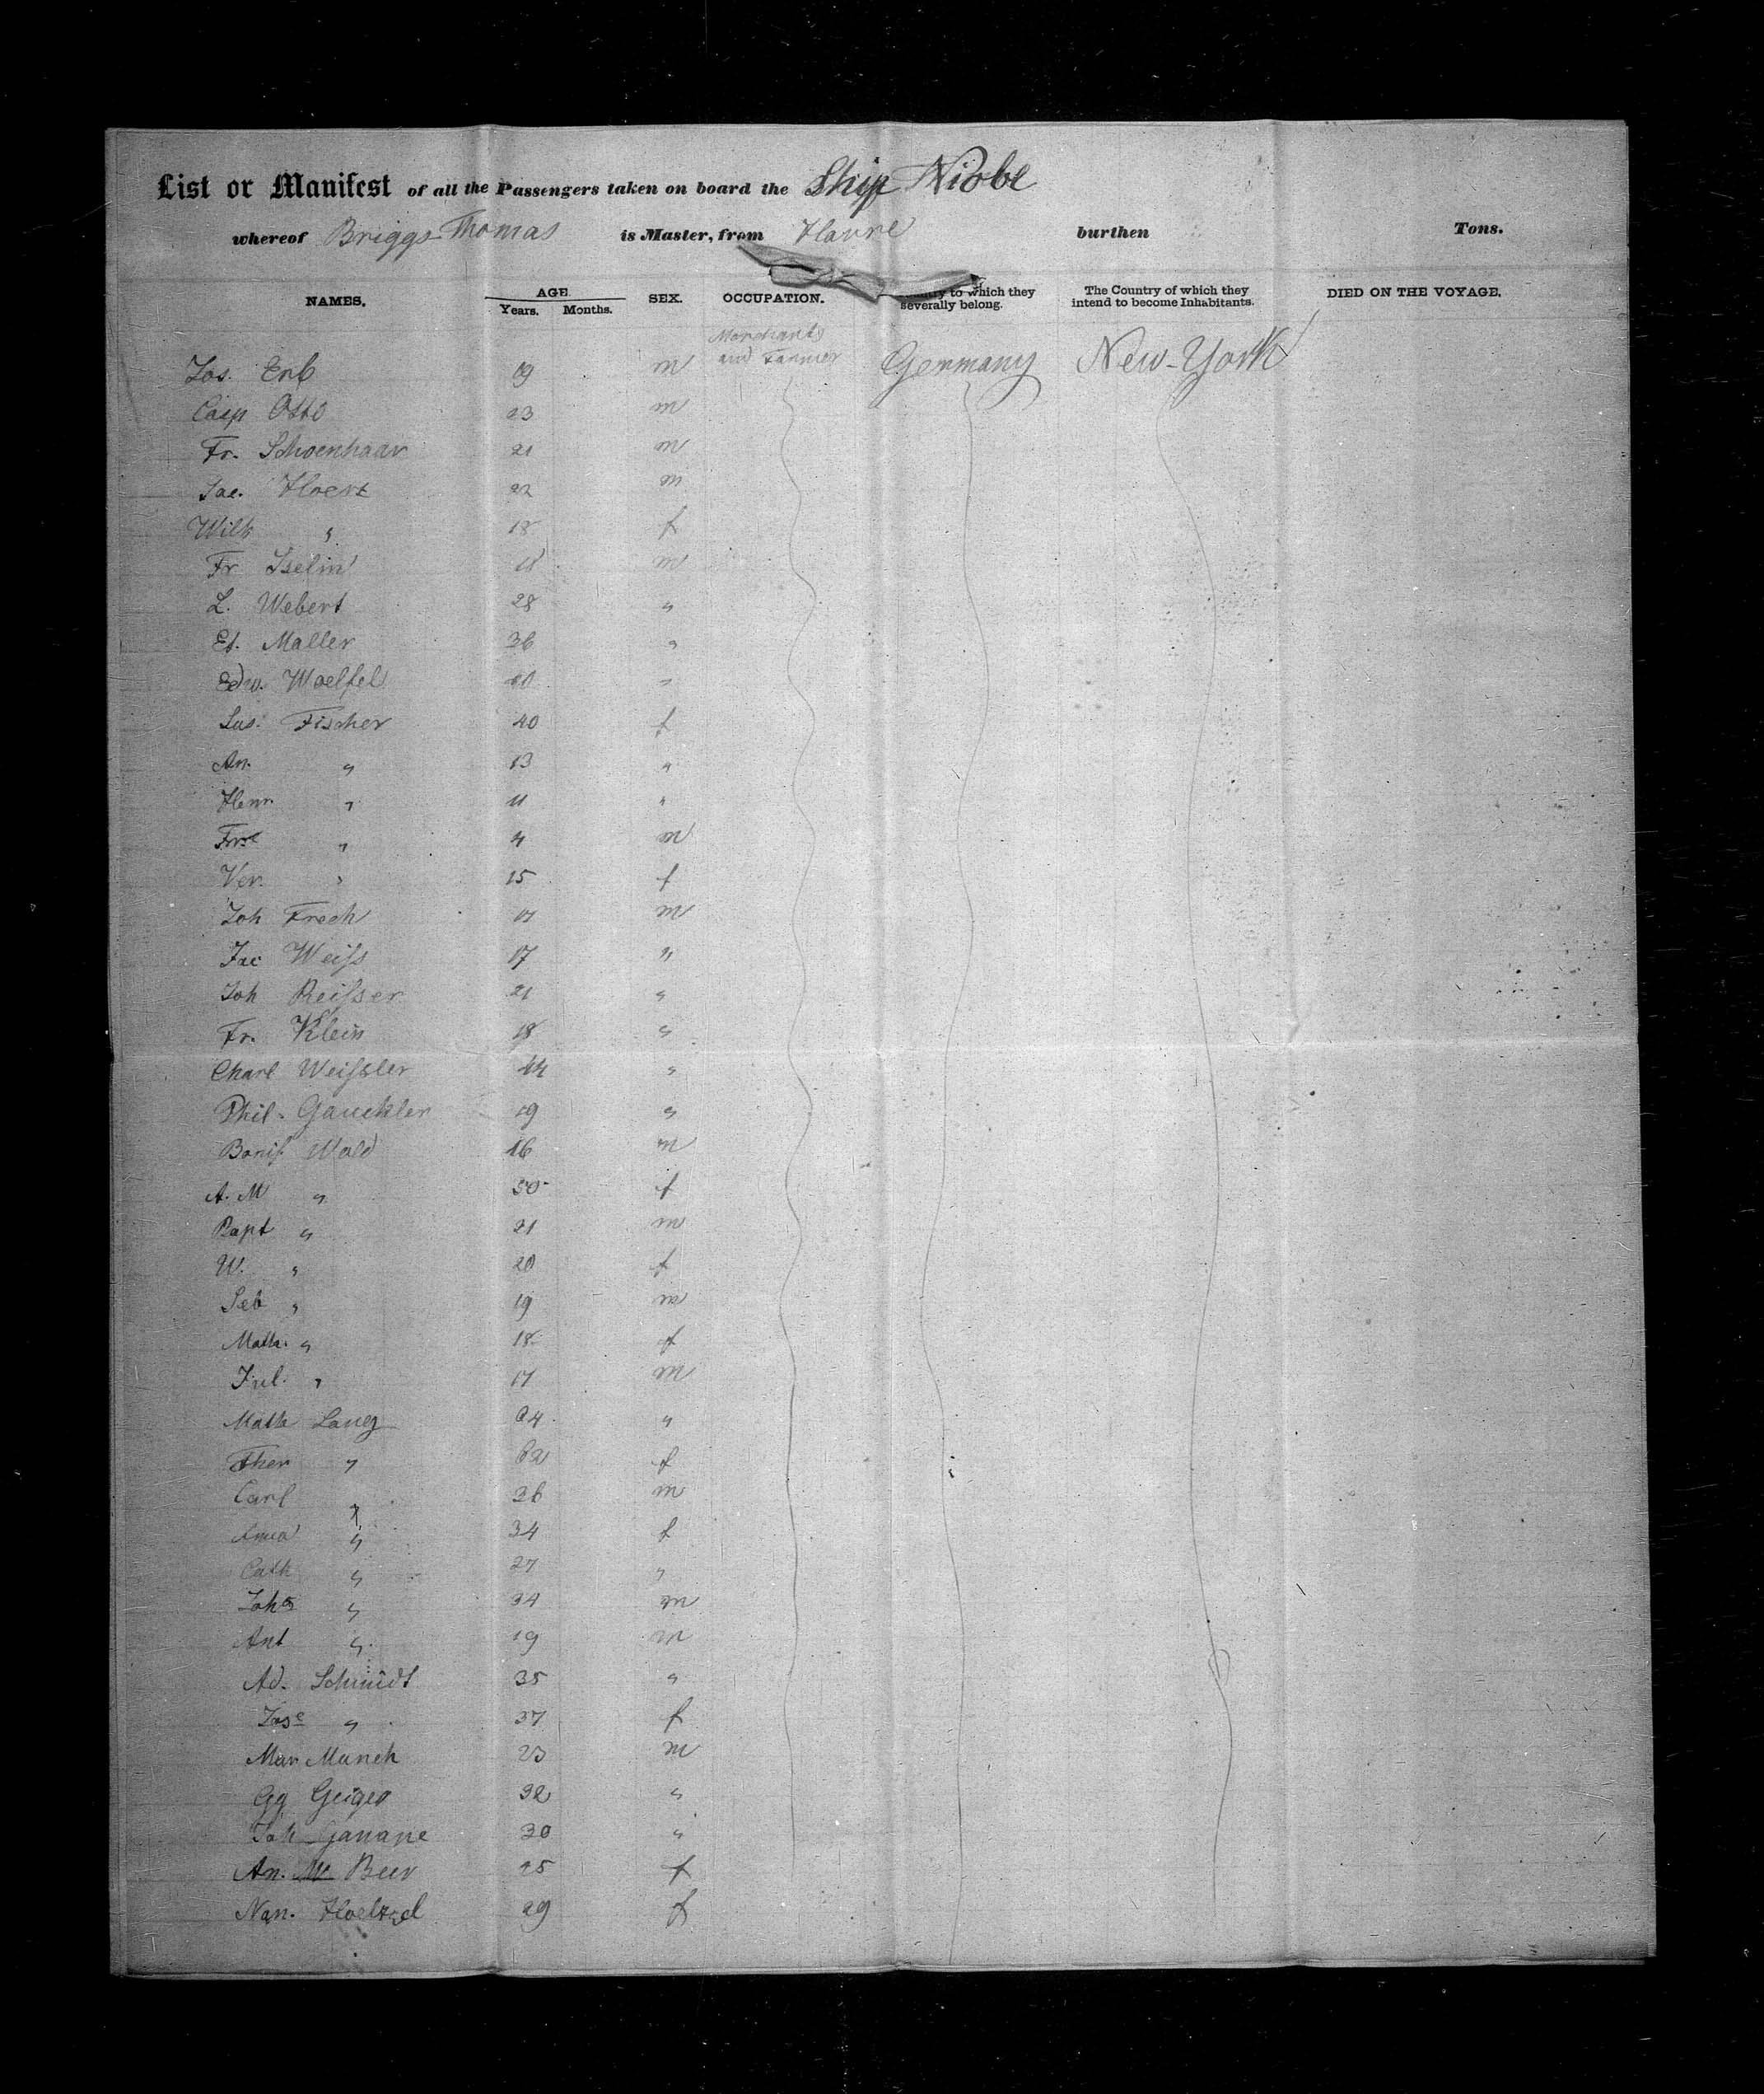 List or Manifest of all the Passengers taken on board the Ship Niobe
whereof Briggs Thomas is Master, from Havre burthen Tons.
NAMES. AGE. Years. Months. SEX. OCCUPATION. Country to which they severally belong. The Country of which they intend to become Inhabitants. DIED ON THE VOYAGE.
Merchants
Jos. Erb 19 m and Farmer Germany New-York
Casp Otto 23 m
Fr. Schoenhaar 21 m
Jac. Hoerz 22 m
Wilh " 18 f
Fr Iselin m
L. Webert 28 "
Et. Maller 36 "
Edw. Woelfel "
Sus. Fischer 40 f
An. " 13 "
Henr. " 11 "
" 4 m
Ver. " 15 f
Joh Frech 17 m
Jac Weiſs 17 "
Joh Reiſser 21 "
Fr. Klein 18 "
Charl Weiſsler 44 "
Phil. Gauckler 19 "
Bonif Wald 16 m
A. M " 50 f
Bapt " 21 m
W. " 20 f
Seb " 19 m
Math. " 18 f
Jul. " 17 m
Math Lang 64 "
Ther " 62 f
Carl " 36 m
Anna " 34 f
Cath " 27 "
Johs " 34 m
Ant " 19 m
Ad. Schmidt 35 "
Jose " 37 f
Mar Munch 23 m
Gg Geiger 32 "
Joh Ganane 30 "
An. M. Beer 25 f
Nan. Hoeltzel 29 f